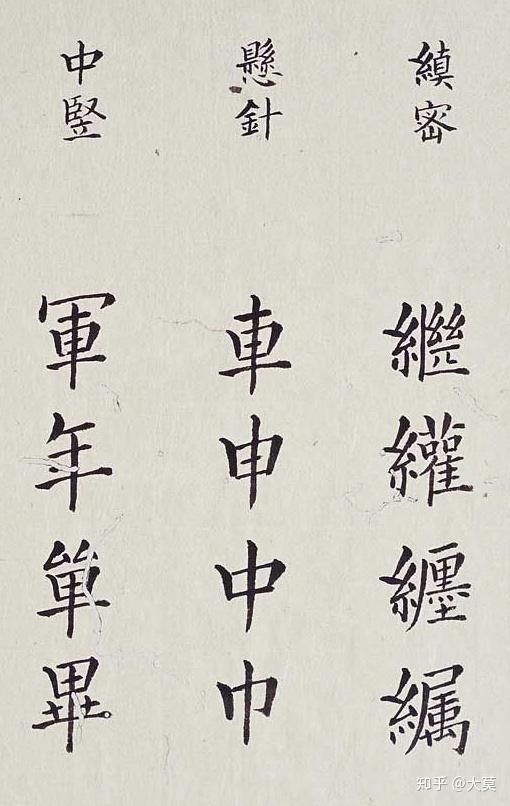 縝密
繼
纙
纏
纊
懸針
車
申
中
巾
中竪
軍
年
單
畢
知乎 @大莫